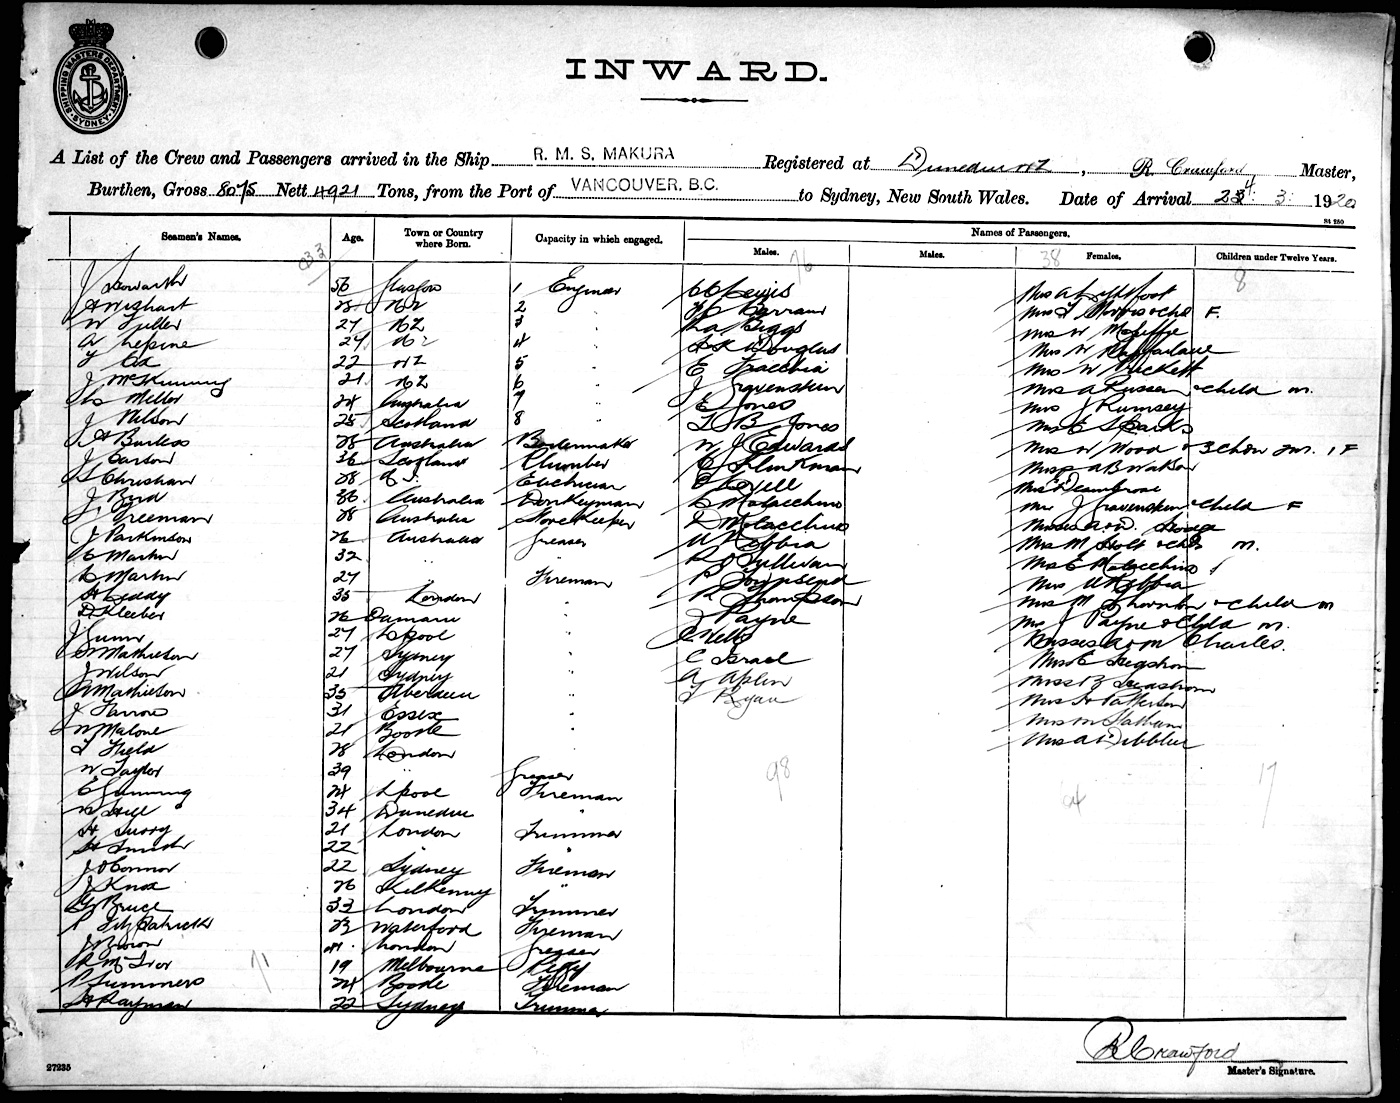 SHIPPING MASTERS DEPARTMENT SYDNEY
INWARD.
A List of the Crew and Passengers arrived in the Ship R. M. S. MAKURA Registered at Dunedin NZ, R. Crawford Master,
Burthen, Gross 8075 Nett 4921 Tons, from the Port of VANCOUVER. B.C. to Sydney, New South Wales. Date of Arrival 24. 3. 1920
S4 250
Seamen's Names. Age. Town or Country where Born. Capacity in which engaged. Names of Passengers.
Males. 76 Males. 38 Females. Children under Twelve Years. 8
J Howarth 56 Glasgow 1 Engineer C C Lewis Mrs A Lightfoot
A Wishart 28 NZ 2 Barran Mrs Morris & Chd F.
W Fuller 27 NZ 3 Biggs Mrs W
A Lepine 24 NZ 4 Douglas Mrs W Macfarlane
Cox 22 NZ 5 E Mrs W Prickett
J McSkimming 21 NZ 6 J Gravenstein Mrs A Russen & child m.
Miller 24 Australia 7 E Jones Mrs J Rumsey
J Nilson 25 Scotland 8 B Jones Mrs E Sparks
J A Burless 28 Australia Boilermaker W J Edwards Mrs W Wood & 3 chdn 2m. 1 F
J Carson 36 Scotland Plumber C Mrs A B Watson
Christian 28 Electrician C Lovell
J Bird 36 Australia Donkeyman Malacchino Mrs J Gravenstein & Child F
J Freeman 28 Australia Storekeeper D Malacchino Misses A & D
J Parkinson 26 Australia Greaser U Robbia Mrs M Holt & Chd m.
C Martin 32 " Sullivan Mrs E Malacchino
L Martin 27 Fireman R Townsend Mrs U Robbia
H Leddy 35 London " R Thompson Mrs M Thornton & Child m
D Kleeber 26 Oamaru " J Payne Mrs J Payne & Child m.
J Gunn 27 Lpool " C Wells Misses A & M Charles.
Mathieson 27 Sydney " C Israel Miss E Segstrom
J Wilson 21 Sydney " A Aplin Miss B Segstrom
Mathieson 35 Aberdeen " T Ryan Mrs H Patterson
J Farrow 31 Essex " Mrs M Latham
W Malone 21 Bootle " Mrs A Dibblee
T Field 28 London
W Taylor 39 " Greaser 98 64 17
E Gunning 24 Lpool Fireman
Hill 34 Dunedin "
H Surry 21 London Trimmer
H Smith 22 " "
J O'Connor 22 Sydney Fireman
J Knox 26 Kilkenny "
G Bruce 33 London Trimmer
P Fitzpatrick 23 Waterford Fireman
J Brown 41 London Greaser
R McIvor 19 Melbourne Peggy
P Summers 24 Bootle Fireman
H Rayman 22 Sydney Trimmer
71
R Crawford
Master's Signature.
27235